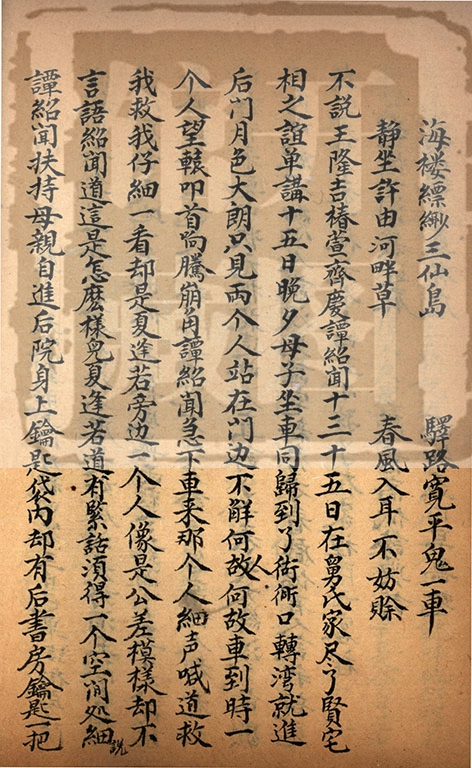 海楼縹緲三仙島 驛路寬平鬼一車
静坐許由河畔草 春風入耳不妨賒
不説王隆吉椿萱齊慶譚紹聞十三十五日在舅氏家尽了賢宅
相之誼单講十五日晚夕母子坐車同歸到了衕口轉湾就進
后门月色大朗只見两个人站在门边不解何人何故車到時一
个人望轅叩首尚騰崩角譚紹聞急下車来那个人細声喊道救
我救我仔細一看却是夏逢若旁边一个人像是公差模樣却不
言語紹聞道這是怎麽樣兒夏逢若道有緊話須得一个空间处細説
譚紹聞扶持母親自進后院身上鑰匙袋内却有后書房鑰匙一把